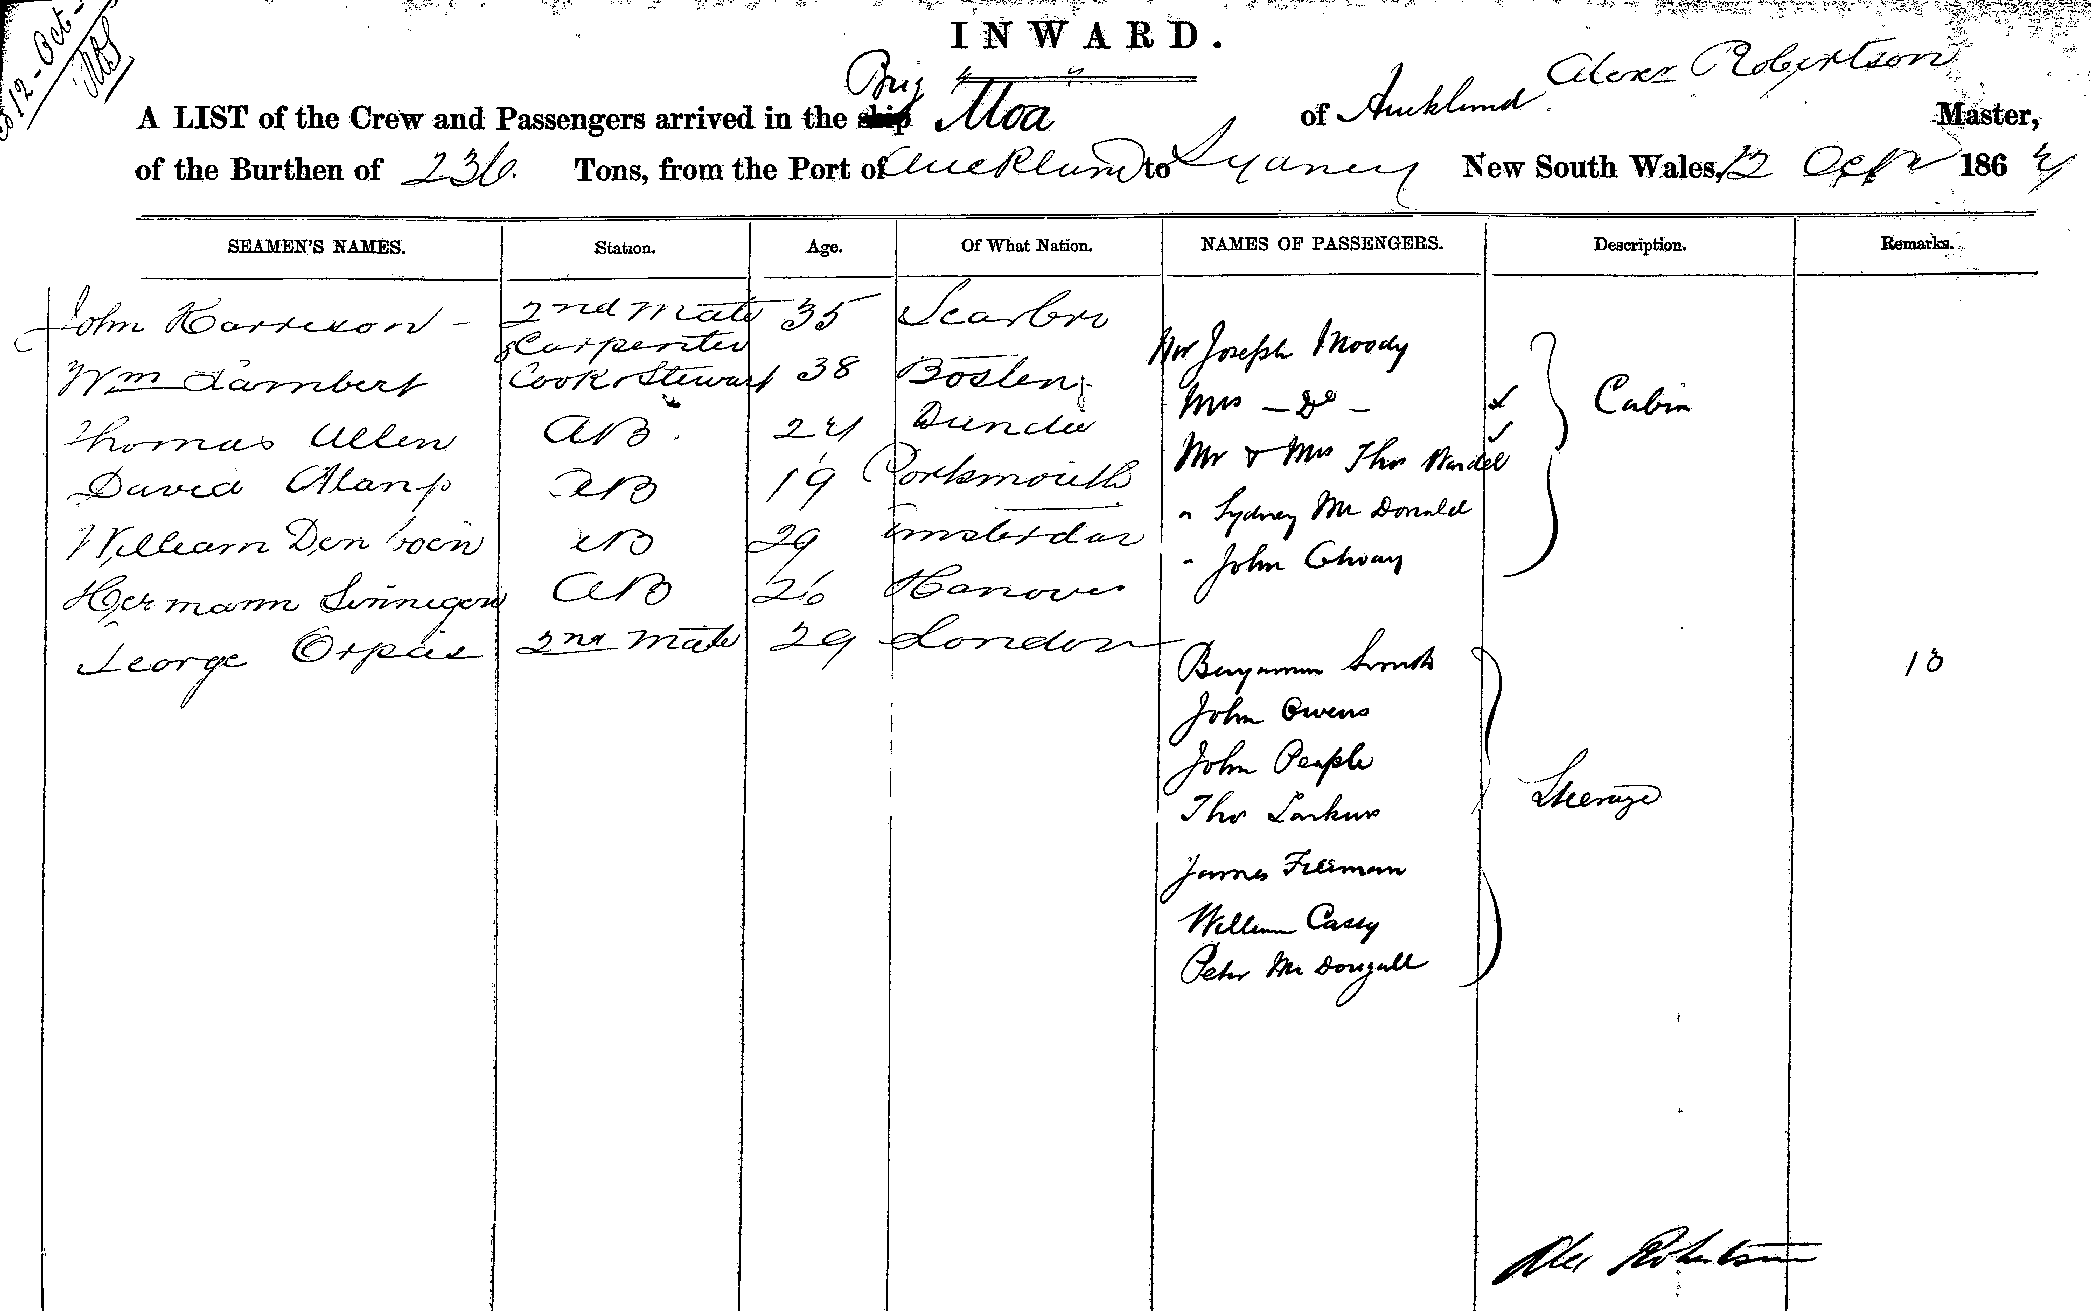 12 - Oct -
INWARD.
Brig
Alexr Robertson
A LIST of the Crew and Passengers arrived in the ship Moa of Auckland Master,
of the Burthen of 236. Tons, from the Port of Auckland to Sydney New South Wales, 12 Octr 1864
SEAMEN'S NAMES. Station. Age. Of What Nation. NAMES OF PASSENGERS. Description. Remarks.
John Harrison - 2nd Mate & Carpenter 35 Scarbro
Wm Lambert Cook & Steward 38 Boston
Thomas Allen AB. 24 Dundee
David AB 19 Portsmouth
William Den AB 29 Amsterdam
Hermann AB 26 Hanover
George 2nd Mate 29 London
Mr Joseph Moody
Mrs - Do - Cabin
Mr & Mrs Thos
" Sydney Mc Donald
" John
Benjamin Smith 13
John Owens
John People
Thos Larkins Steerage
James Freeman
William Casey
Peter Mc Dougall
Alex Robertson